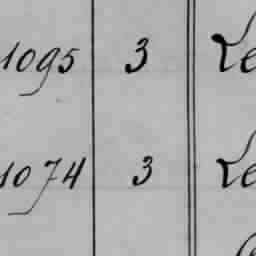 1095 3 Le
1074 3 Le